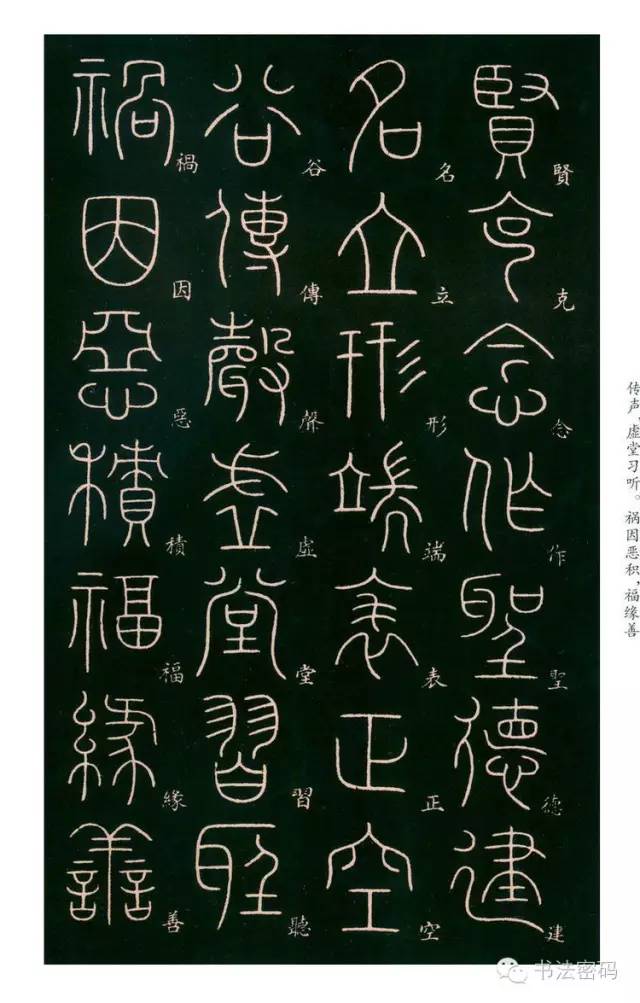 賢克念作聖德建
名立形端表正空
谷傳聲虛堂習聽
禍因惡積福緣善
賢克念作聖德建
名立形端表正空
谷傳聲虚堂習聽
禍因惡積福緣善
传声，虚堂习听。祸因恶积，福缘善
书法密码